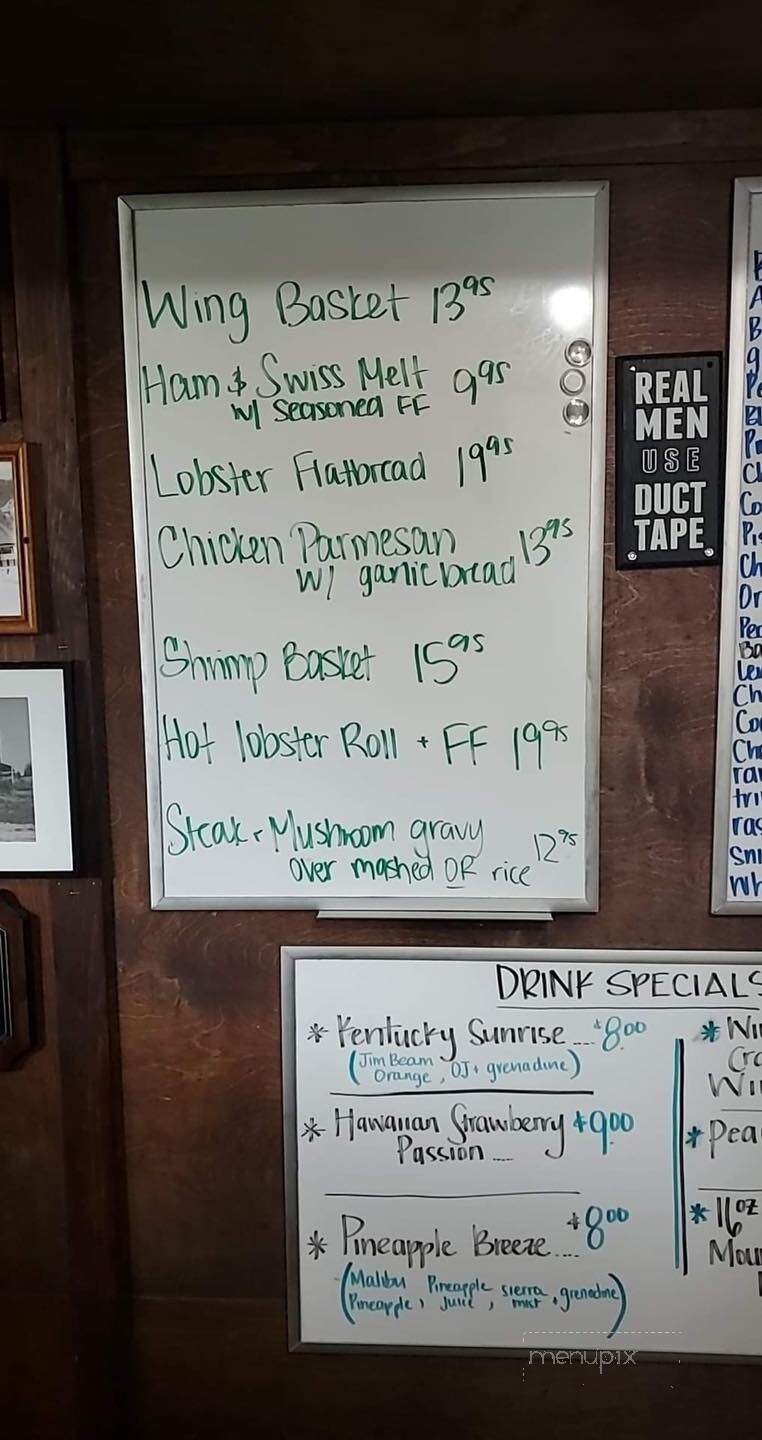 Wing Basket 13⁹⁵
Ham & Swiss Melt 9⁹⁵
w/ Seasoned FF
Lobster Flatbread 19⁹⁵
Chicken Parmesan 13⁹⁵
w/ garlic bread
Shrimp Basket 15⁹⁵
Hot lobster Roll + FF 19⁹⁵
Steak + Mushroom gravy 12⁹⁵
over mashed OR rice
REAL
MEN
USE
DUCT
TAPE
DRINK SPECIALS
* Kentucky Sunrise ... $8⁰⁰
(Jim Beam
Orange, OJ + grenadine)
* Hawaiian Strawberry $9⁰⁰
Passion ...
* Pineapple Breeze .... $8⁰⁰
(Malibu Pineapple sierra
Pineapple, juice, mist + grenadine)
* 16oz
menupix